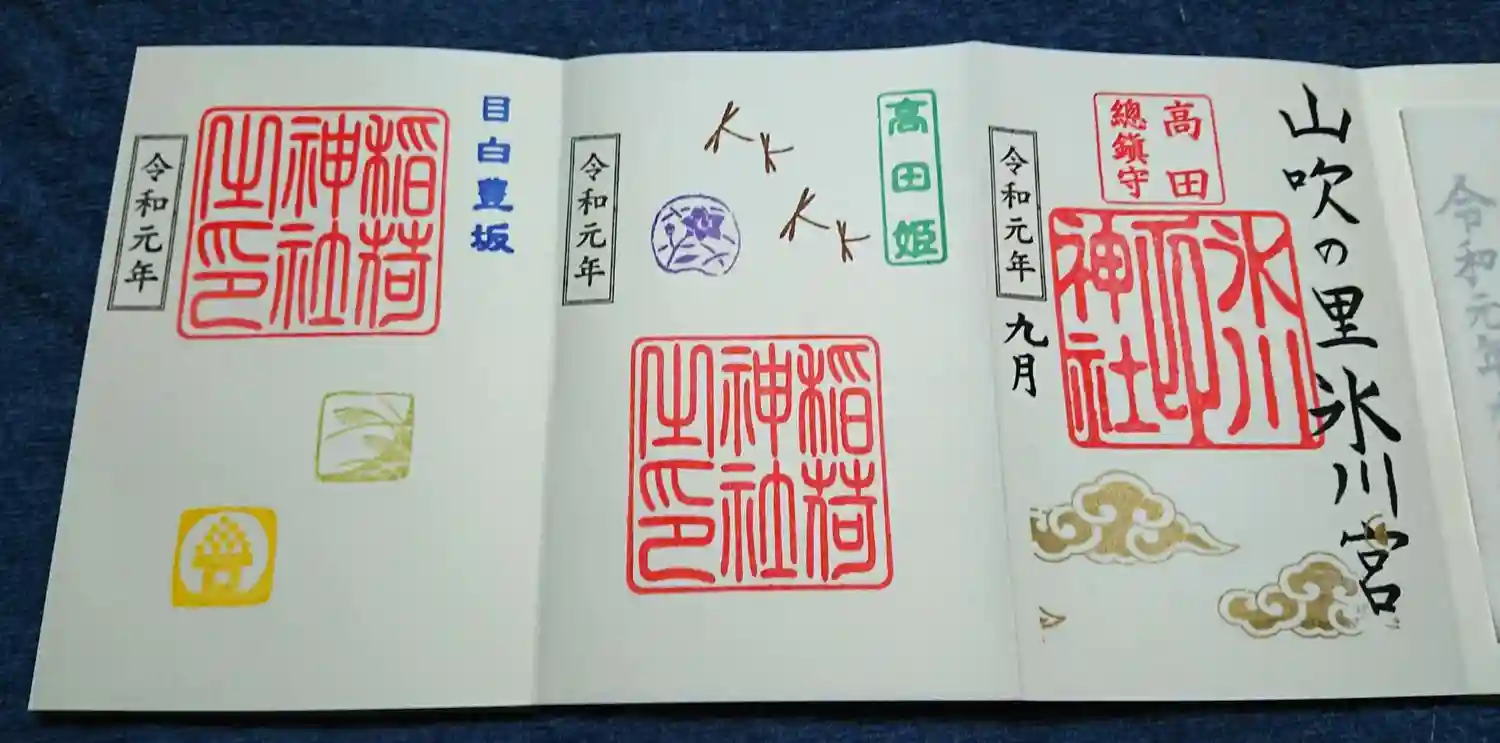 目白豊坂
稲荷
神社
之印
令和元年
高田姫
稲荷
神社
之印
令和元年
山吹の里 氷川宮
高田
總鎮守
氷川
神社
令和元年
九月
令和元年